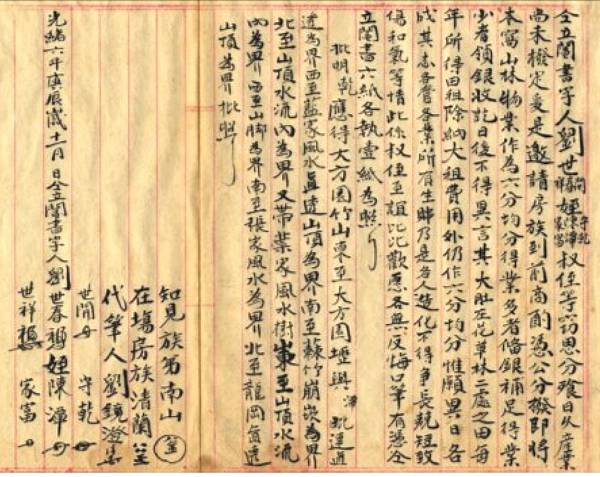 仝立鬮書字人劉世春姪陳潭權侄等竊思分爨日久產業
尚未撥定爰是邀請房族到前商酌憑公分撥即將
本窩山林物業作為六分均分得業多者俻銀補足得業
少者領銀收訖日後不得異言其大肚左花草林二處之田每
年所得田租除納大租費用外仍作六分均分惟願異日各
成其志各營各業所有生貯乃是各人造化不得争長競短致
傷和氣等情此係權侄至誼比比歡愿各無反悔口筆有憑仝
立鬮書六紙各執壹紙為照
批明乾應得大方園竹山東至大方園墘與潭毗連通
透為界西至藍家風水直透山頂為界南至蔴竹崩崁為界
北至山頂水流內為界又帶葉家風水樹東至山頂水流
內為界西至山脚為界南至張家風水為界北至龍岡直透
山頂為界批照
知見族弟南山
在塲房族清蘭
代筆人劉鏡澄
世閒 守乾
光緒六年庚辰歲十二月 日仝立鬮書字人劉世春 姪陳潭
世祥 家富